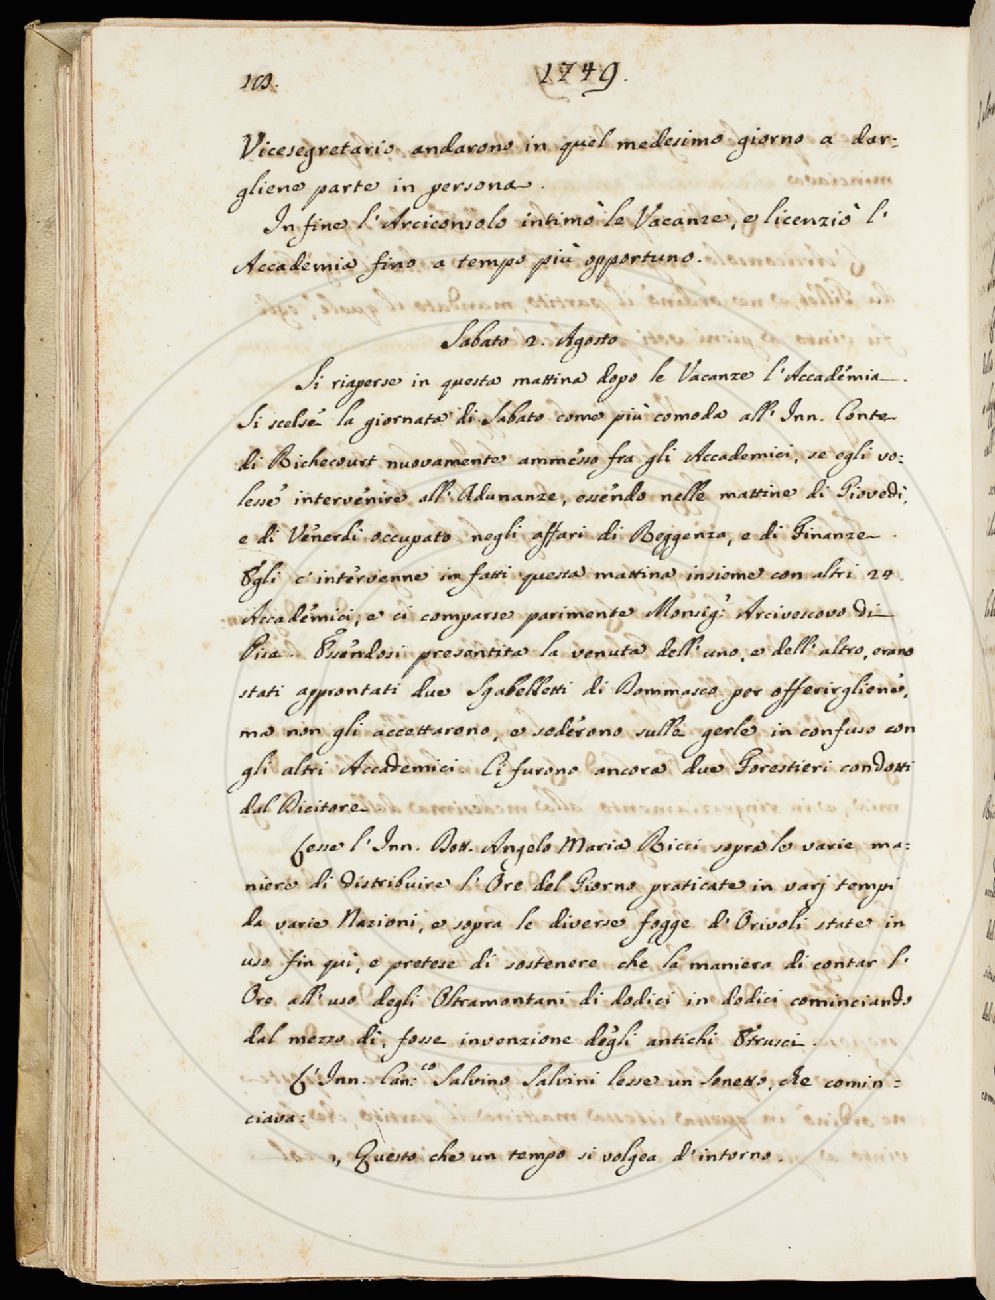 103. 1749.
Vicesegretario andarono in quel medesimo giorno a dar=
gliene parte in persona.
In fine l'Arciconsolo intimò le Vacanze, e licenziò l'
Accademia fino a tempo più opportuno.
Sabato 2. Agosto
Si riaperse in questa mattina dopo le Vacanze l'Accademia.
Si scelse la giornata di Sabato come più comoda all'Inn. Conte
di Richecourt nuovamente ammesso fra gli Accademici, se egli vo=
lesse intervenire all'Adunanze, essendo nelle mattine di Giovedì,
e di Venerdì occupato negli affari di Reggenza, e di Finanze.
Egli c'intervenne in fatti questa mattina insieme con altri 24.
Accademici, e ci comparse parimente Monsig.r Arcivescovo di
Pisa. Essendosi presentita la venuta dell'uno, e dell'altro, erano
stati approntati due Sgabelletti di Dommasco per offerirgliene,
ma non gli accettarono, e sederono sulle gerle in confuso con
gli altri Accademici. Ci furono ancora due Forestieri condotti
dal Dicitore.
Lesse l'Inn. Dott. Angelo Maria Ricci sopra le varie ma=
niere di distribuire l'Ore del Giorno praticate in varj tempi
da varie Nazioni, e sopra le diverse fogge d'Orivoli state in
uso fin qui, e pretese di sostenere che la maniera di contar l'
Ore all'uso degli Oltramontani di dodici in dodici cominciando
dal mezzo dì, fosse invenzione degli antichi Etrusci.
L'Inn. Can.co Salvino Salvini lesse un Sonetto, che comin=
ciava:
„ Questo che un tempo si volgea d'intorno.